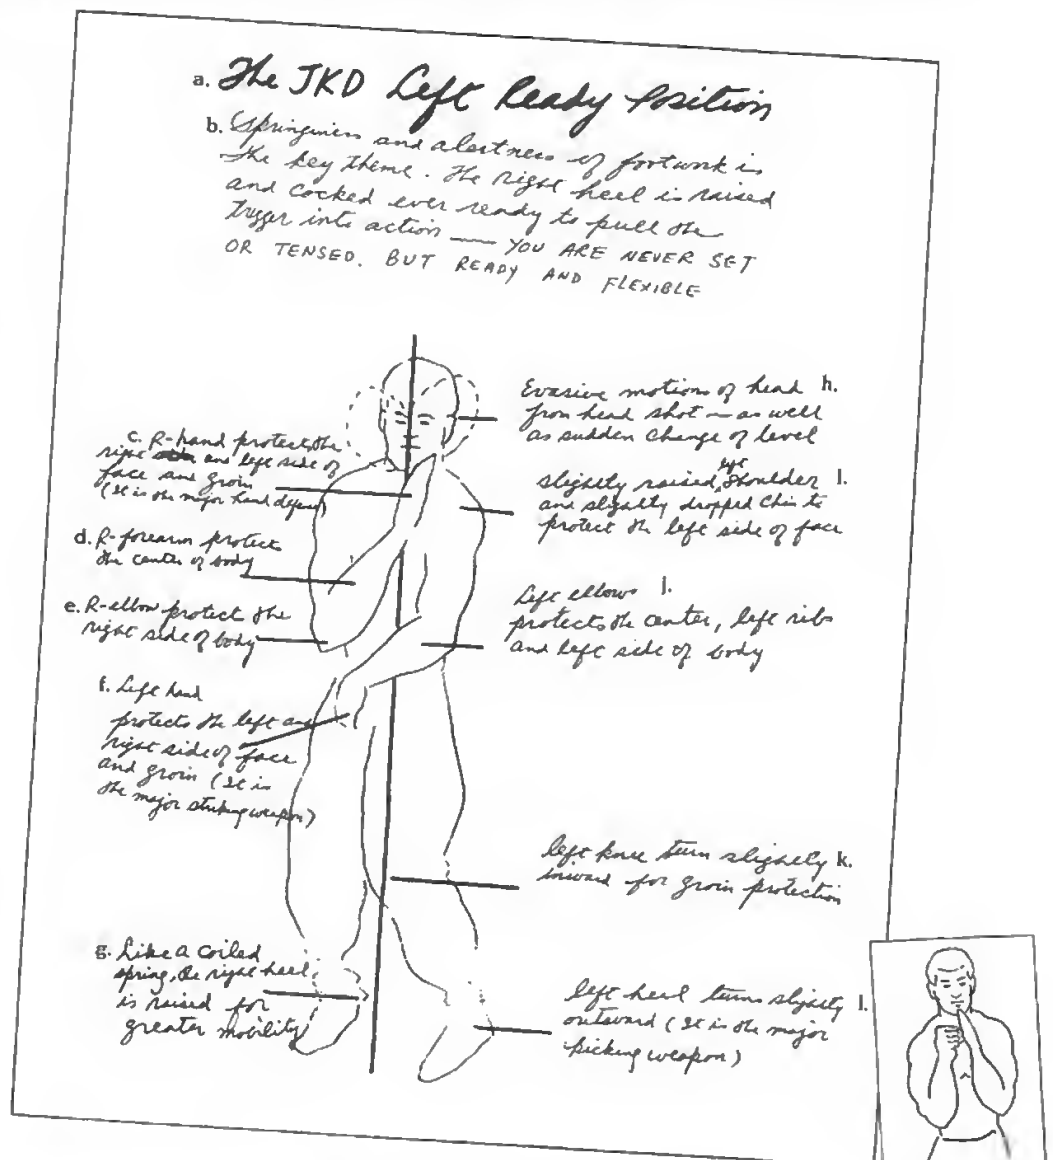 a. The JKD Left Ready Position
b. Springiness and alertness of footwork is
the key theme. The right heel is raised
and cocked ever ready to pull the
trigger into action — YOU ARE NEVER SET
OR TENSED. BUT READY AND FLEXIBLE
c. R-hand protect the
right and left side of
face and groin
(It is the major hand defense)
d. R-forearm protect
the center of body
e. R-elbow protect the
right side of body
f. Left hand
protects the left and
right side of face
and groin (It is
the major striking weapon)
g. Like a coiled
spring, the right heel
is raised for
greater mobility
Evasive motions of head h.
from head shot — as well
as sudden change of level
slightly raised, left shoulder I.
and slightly dropped chin to
protect the left side of face
Left elbows l.
protects the center, left ribs
and left side of body
left knee turn slightly k.
inward for groin protection
left heel turns slightly l.
outward (It is the major
kicking weapon)